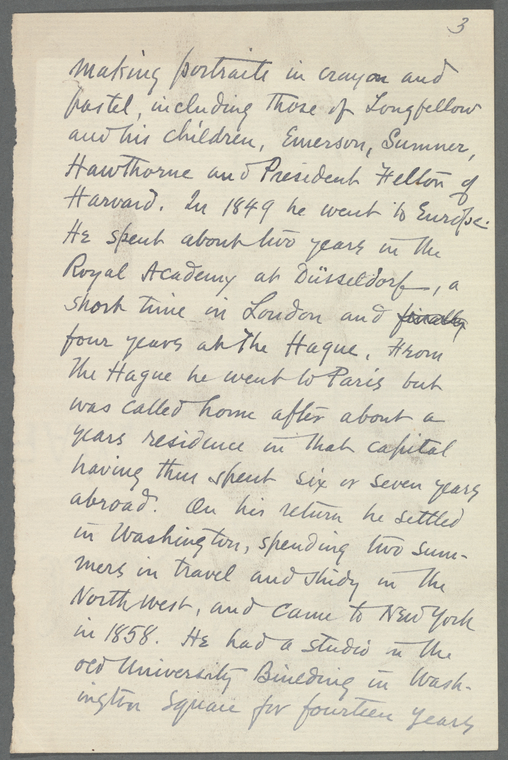 3
making portraits in crayon and
pastel, including those of Longfellow
and his children, Emerson, Sumner,
Hawthorne and President Felton of
Harvard. In 1849 he went to Europe.
He spent about two years in the
Royal Academy at Düsseldorf, a
short time in London and finally
four years at The Hague. From
The Hague he went to Paris but
was called home after about a
years residence in that capital
having thus spent six or seven years
abroad. On his return he settled
in Washington, spending two sum-
mers in travel and study in the
Northwest, and came to New York
in 1858. He had a studio in the
old University Building in Wash-
ington Square for fourteen years